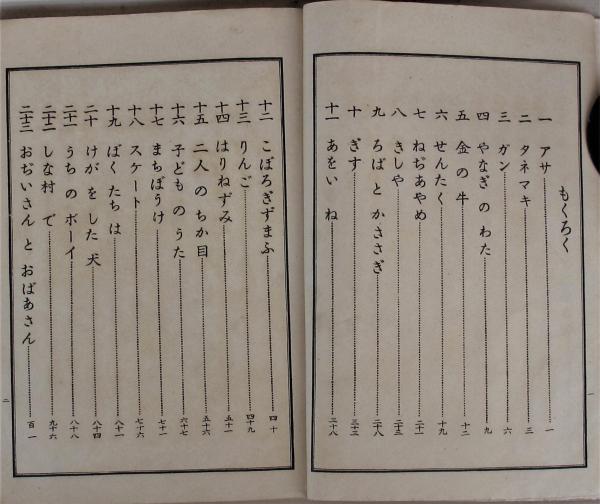 もくろく
一 アサ 一
二 タネマキ 三
三 ガン 六
四 やなぎ の わた 九
五 金 の 牛 十二
六 せんたく 十九
七 ねぢあやめ 二十一
八 きしや 二十三
九 ろば と かささぎ 二十八
十 ぎす 三十三
十一 あをい ね 三十八
一
十二 こぼろぎずまふ 四十
十三 りんご 四十九
十四 はりねずみ 五十一
十五 二人 の ちか目 五十六
十六 子ども の うた 六十七
十七 まちぼうけ
十八 スケート 七十六
十九 ぼくたち は 八十一
二十 けが を した 犬 八十四
二十一 うち の ボーイ 八十八
二十二 しな村 で 九十六
二十三 おぢいさん と おばあさん 百一
二